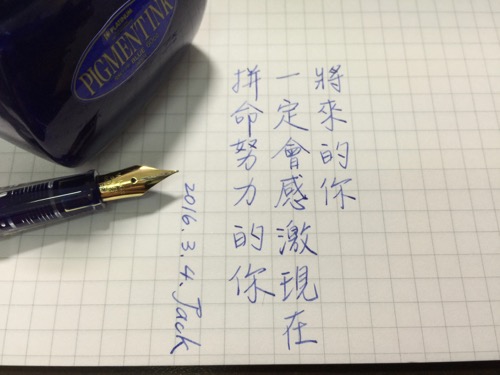 將來的你
一定會感激現在
拼命努力的你
2016.3.4.Jack
PLATINUM
PIGMENT INK